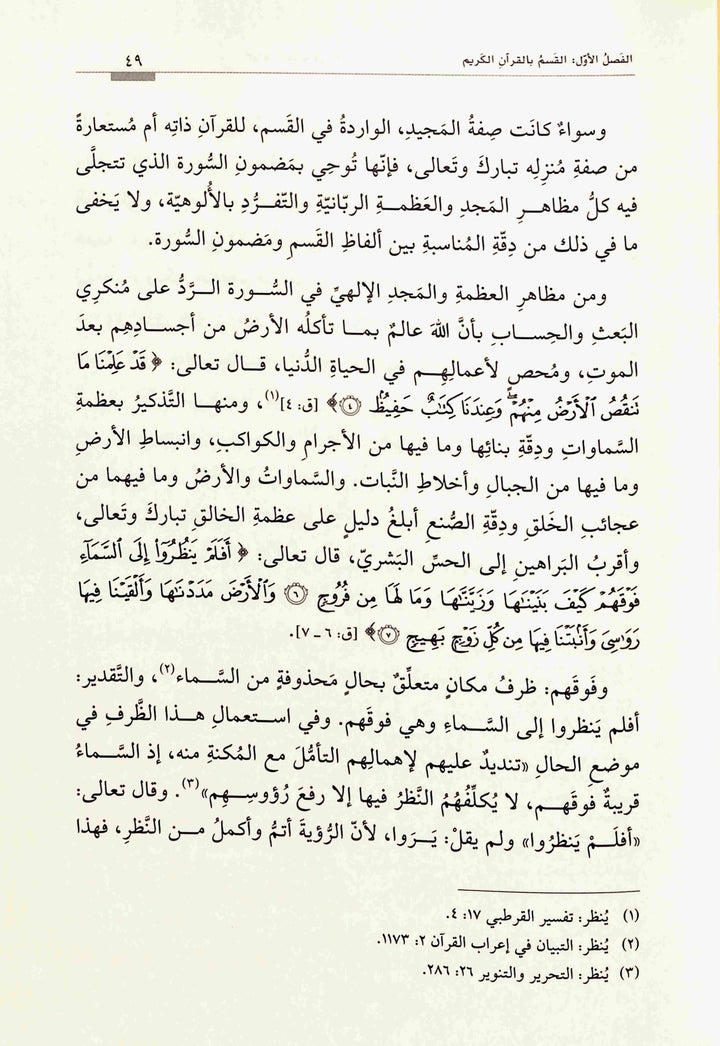 الفَصلُ الأوّل: القَسمُ بالقرآنِ الكَريم
٤٩
وسواءٌ كانَت صِفةُ المَجيدِ، الواردةُ في القَسم، للقرآنِ ذاتِه أم مُستعارةً
من صفةِ مُنزِلِه تباركَ وتَعالى، فإنّها تُوحِي بمَضمونِ السُّورة الذي تتجلَّى
فيه كلُّ مظاهـرِ المَجدِ والعَظمـةِ الربّانيّةِ والتّفـرُّدِ بالأُلوهيّة، ولا يَخفى
ما في ذلك من دِقّةِ المُناسبةِ بين ألفاظِ القَسمِ ومَضمونِ السُّورة.
ومن مظاهرِ العظمةِ والمَجدِ الإلهيِّ في السُّـورة الـرَّدُّ على مُنكرِي
البَعثِ والحِسـابِ بأنَّ اللهَ عالمٌ بمـا تأكلُه الأرضُ من أجسـادِهِم بعدَ
الموتِ، ومُحصٍ لأعمالِهِـم في الحياةِ الدُّنيا، قـال تعالى: ﴿ قَدْ عَلِمْنَا مَا
نَنقُصُ ٱلْأَرْضُ مِنْهُمْ ۖ وَعِندَنَا كِتَٰبٌ حَفِيظٌۢ ۝٤ ﴾ [ق: ٤](١)، ومنهـا التَّذكيرُ بعظمةِ
السَّماواتِ ودِقّةِ بنائِها وما فيها من الأجرامِ والكواكبِ، وانبساطِ الأرضِ
وما فيها من الجبالِ وأخلاطِ النَّبات. والسَّماواتُ والأرضُ وما فيهما من
عجائبِ الخَلقِ ودِقّةِ الصُّنعِ أبلغُ دليلٍ على عظمةِ الخالقِ تباركَ وتَعالى،
وأقربُ البَراهينِ إلى الحسِّ البَشريّ، قال تعالى: ﴿ أَفَلَمْ يَنظُرُوٓا۟ إِلَى ٱلسَّمَآءِ
فَوْقَهُمْ كَيْفَ بَنَيْنَٰهَا وَزَيَّنَّٰهَا وَمَا لَهَا مِن فُرُوجٍ ۝٦ وَٱلْأَرْضَ مَدَدْنَٰهَا وَأَلْقَيْنَا فِيهَا
رَوَٰسِىَ وَأَنۢبَتْنَا فِيهَا مِن كُلِّ زَوْجٍۭ بَهِيجٍ ۝٧ ﴾ [ق: ٦ ـ ٧].
وفَوقَهم: ظرفُ مكانٍ متعلِّقٌ بحالٍ مَحذوفةٍ من السَّـماء(٢)، والتَّقدير:
أفلم يَنظروا إلى السَّـماءِ وهي فوقَهم. وفي اسـتعمالِ هـذا الظَّرفِ في
موضعِ الحالِ «تنديدٌ عليهم لإهمالِهِم التأمُّلَ مع المُكنةِ منه، إذ السَّـماءُ
قريبةٌ فوقَهـم، لا يُكلِّفُهُمُ النَّظرُ فيها إلا رفعَ رُؤوسِـهِم»(٣). وقال تعالى:
«أفلَـمْ يَنظرُوا» ولم يقلْ: يَـرَوا، لأنّ الرُّؤيةَ أتمُّ وأكملُ مـن النَّظرِ، فهذا
(١) يُنظر: تفسير القرطبي ١٧: ٤.
(٢) يُنظر: التبيان في إعراب القرآن ٢: ١١٧٣.
(٣) يُنظر: التحرير والتنوير ٢٦: ٢٨٦.